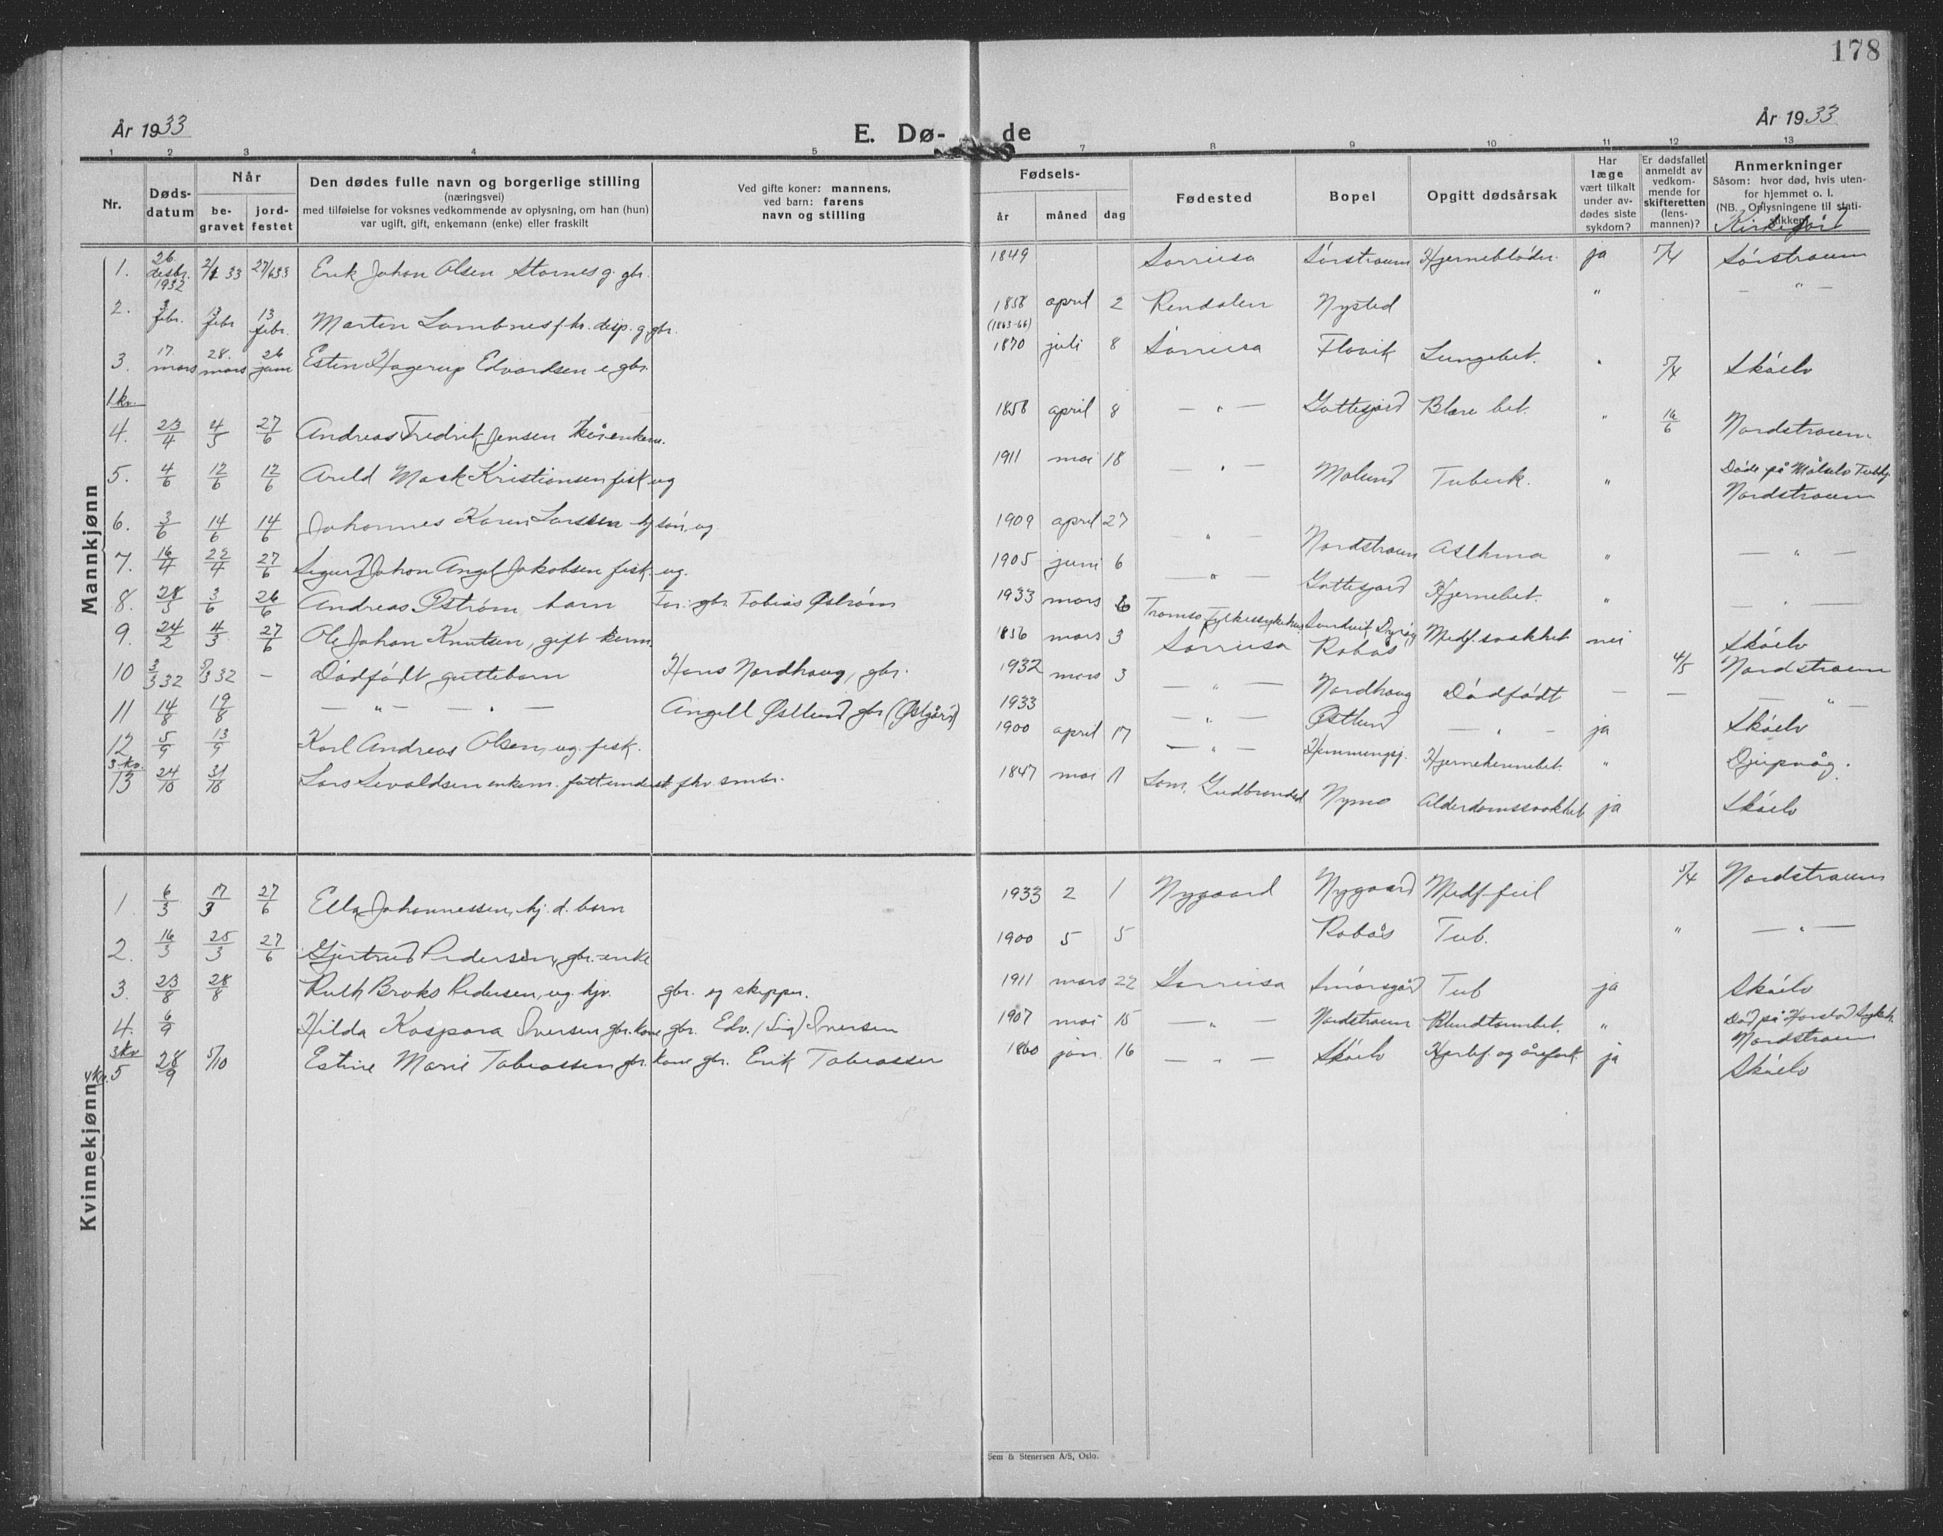 178
År 1933
E. Dø- de
År 1933
1 2 3 4 5 7 8 9 10 11 12 13
Nr.
Døds-datum
Når
be-gravet
jord-festet
Den dødes fulle navn og borgerlige stilling
(næringsvei)
med tilføielse for voksnes vedkommende av oplysning, om han (hun)
var ugift, gift, enkemann (enke) eller fraskilt
Ved gifte koner: mannens,
ved barn: farens
navn og stilling
Fødsels-
år måned dag
Fødested
Bopel
Opgitt dødsårsak
Har læge vært tilkalt under av-dødes siste sykdom?
Er dødsfallet anmeldt av vedkom-mende for skifteretten (lens-mannen)?
Anmerkninger
Såsom: hvor død, hvis uten-
for hjemmet o. l.
(NB. Oplysningene til stati-
stikken)
Mannkjønn
1. 26 desbr. 1932 2/1 33 27/6 33 Erik Johan Olsen Stornes g. gbr. 1849 Sørreisa Sørstraum Hjerneblødn. ja 5/4 Sørstraum
2. 3 febr. 13 febr 13 febr. Martin 1858 (1863-66) april 2 Rendalen Nysted " — " —
3. 17. mars 28. mars 26 juni Estin Hagerup Edvardsen e. gbr. 1870 juli 8 Sørreisa Flovik Lungebet. " 5/4 Skøelv
1 kv.
4. 23/4 4/5 27/6 Andreas Fredrik Jensen 1858 april 8 — " — Gottesjord Blære bet. " 16/6 Nordstraum
5. 4/6 12/6 12/6 Arild Mosk Kristiansen fisk. ug 1911 mai 18 — " — Molund Tuberk. " Døde på Målselv Tubhj. Nordstraum
6. 3/6 14/6 14/6 Johannes Larssen ug 1909 april 27 " Nordstraum Asthma " — " —
7. 16/4 22/4 27/6 Sigurd Johan Angel Jakobsen fisk. ug. 1905 juni 6 — " — Gottesjord Hjernebet. " — " —
8. 28/5 3/6 26/6 Andreas Østrøm barn Far: gbr. Tobias Østrøm 1933 mars 6 Tromsø Fylkessykehus Dyrøy Medf. svakhet nei Skøelv
9. 24/2 4/3 27/6 Ole Johan Knutsen, gift 1856 mars 3 Sørreisa Robås 4/5 Nordstraum
10 3/3 32 32 — Dødfødt guttebarn Hans Nordhaug, gbr. 1932 mars 3 — " — Nordhaug Dødfødt — — — " —
11 14/8 19/8 — " — " — Angell Østlund gbr (Østgård) 1933 — " — Østlund — " — ja Skøelv
12 5/9 13/9 Karl Andreas Olsen, ug. fisk. 1900 april 17 — " — Hemmingsj. Hjernehinnebet. " Djupvåg.
3. kv.
13 24/10 31/10 Lars Sevaldsen enkem. fattunderst. fhv. smbr. 1847 mai 11 Lom, Gudbrandsd. Nymo Alderdomssvakhet ja Skøelv
Kvinnekjønn
1. 6/3 17/3 27/6 Ella Johannessen, hj. d. barn 1933 2 1 Nygaard Nygaard Medf. feil 5/4 Nordstraum
2. 16/3 25/3 27/6 Gjertrud Pedersen, gbr.-enke 1900 5 5 Robås Tub. " — " —
3. 23/8 28/8 Ruth Broks Pedersen, ug. hjv. gbr. og skipper. 1911 mars 22 Sørreisa Smørsgård Tub ja Skøelv
4. 6/9 Hilda Kaspara Iversen gbr.kone gbr. Edv. (Sig) Iversen 1907 mai 15 — " — Nordstraum Blindtarmbet. " Død på Harstad Sykeh. Nordstraum
3 kv
4 kv. 5 28/9 5/10 Estine Marie Tobiassen gbr. kone gbr. Erik Tobiassen 1860 jan. 16 — " — Skøelv Hjertef. og årefork. ja Skøelv
Sem & Stenersen A/S, Oslo.